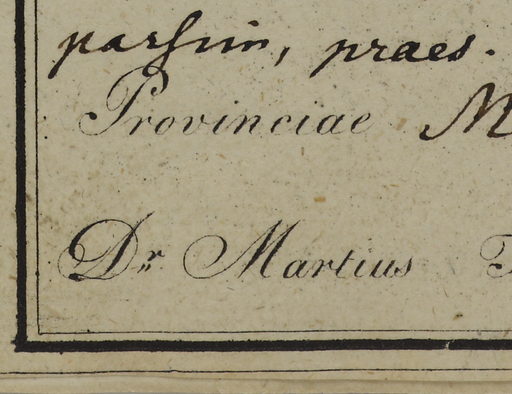 passim, praes.
Provinciae M
Dr Martius